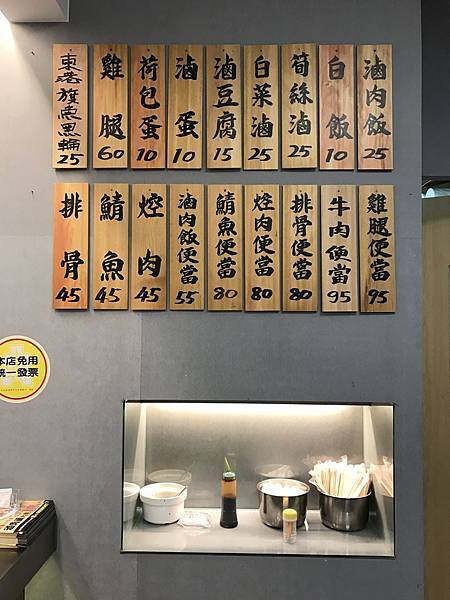 滷肉飯 25
白飯 10
筍絲滷 25
白菜滷 25
滷豆腐 15
滷蛋 10
荷包蛋 10
雞腿 60
東港旗魚黑輪 25
雞腿便當 95
牛肉便當 95
排骨便當 80
焢肉便當 80
鯖魚便當 80
滷肉飯便當 55
焢肉 45
鯖魚 45
排骨 45
本店免用
統一發票